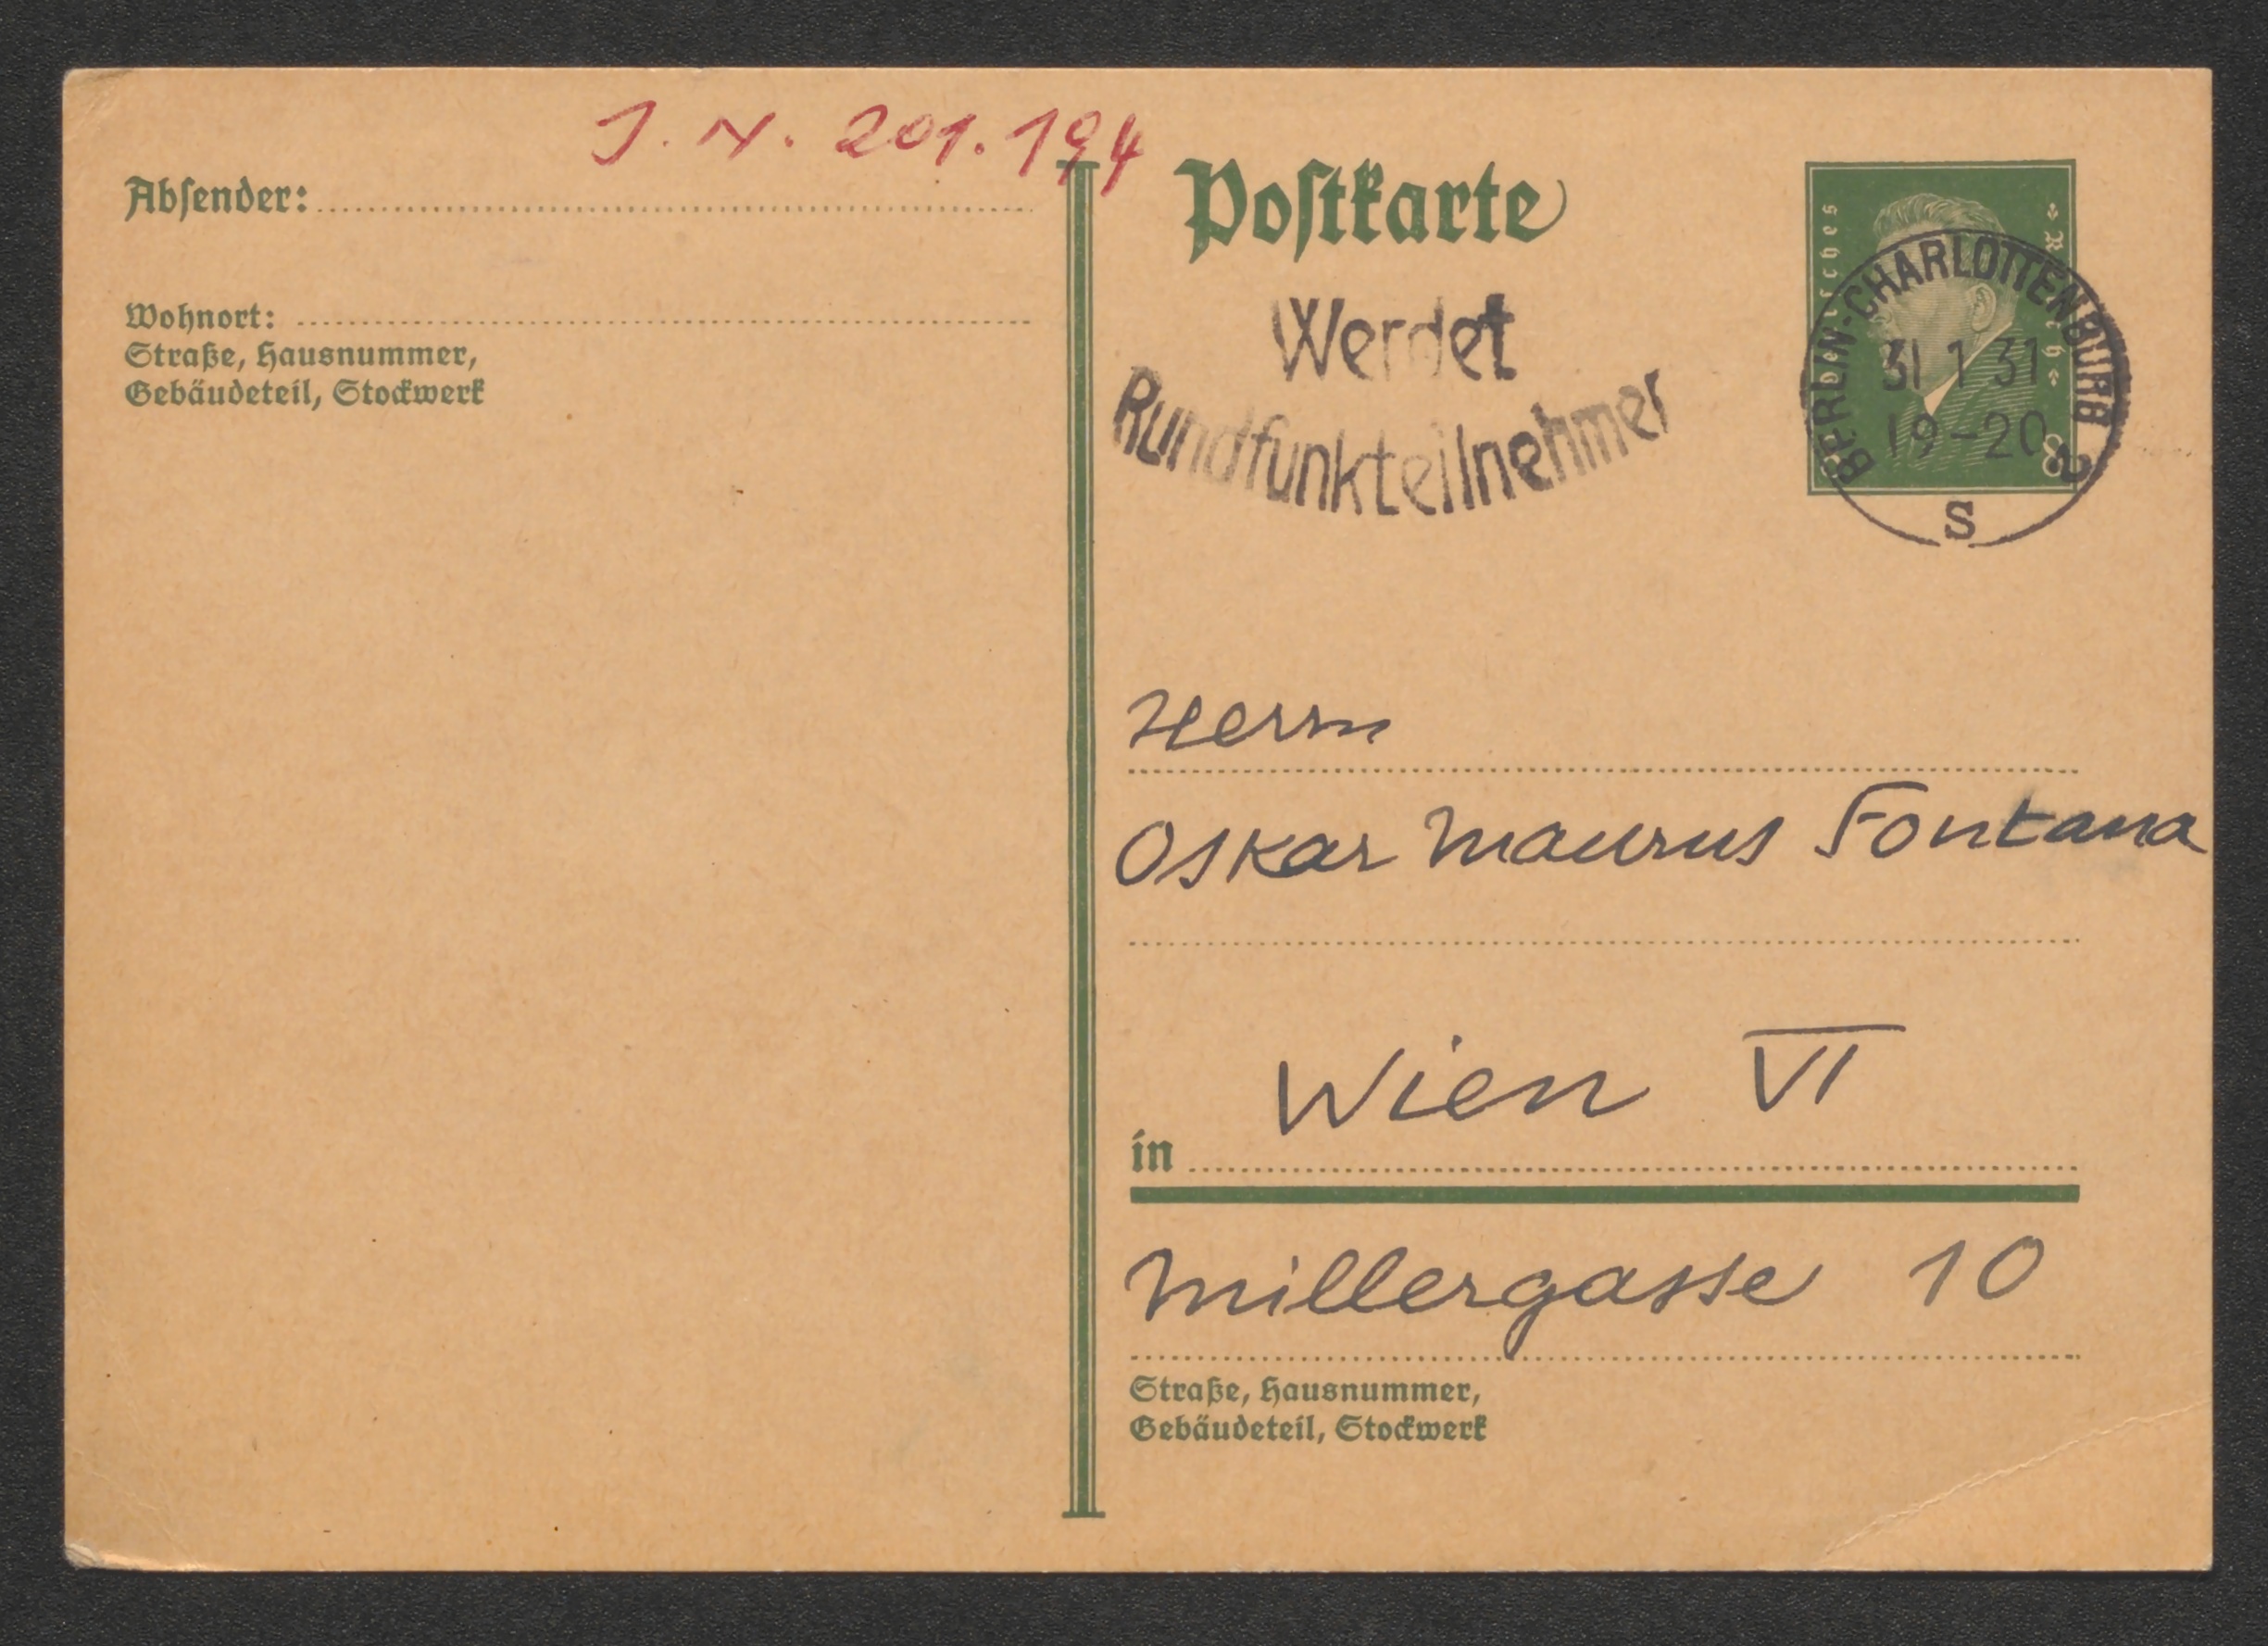 J. N. 201.194
Absender:
Wohnort:
Straße, Hausnummer,
Gebäudeteil, Stockwerk
Postkarte
Werdet
Rundfunkteilnehmer
Deutsches Reich
8
BERLIN-CHARLOTTENBURG 2
31 1 31
19-20
S
Herrn
Oskar Maurus Fontana
Wien VI
in
Millergasse 10
Straße, Hausnummer,
Gebäudeteil, Stockwerk